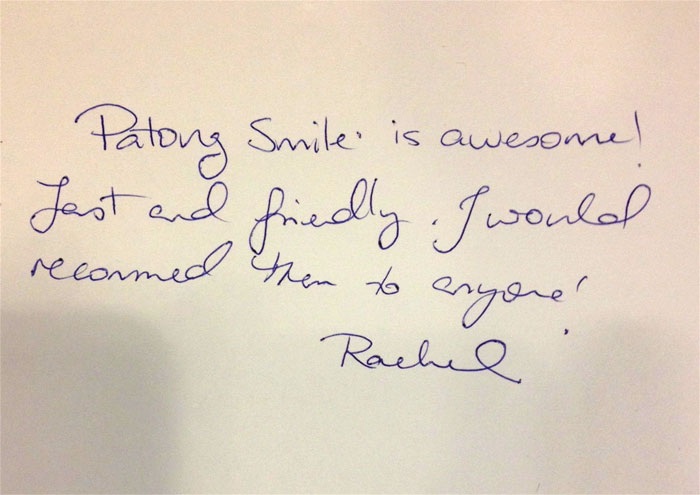 Patong Smile is awesome!
Fast and friendly. I would
recommed them to anyone!
Rachel